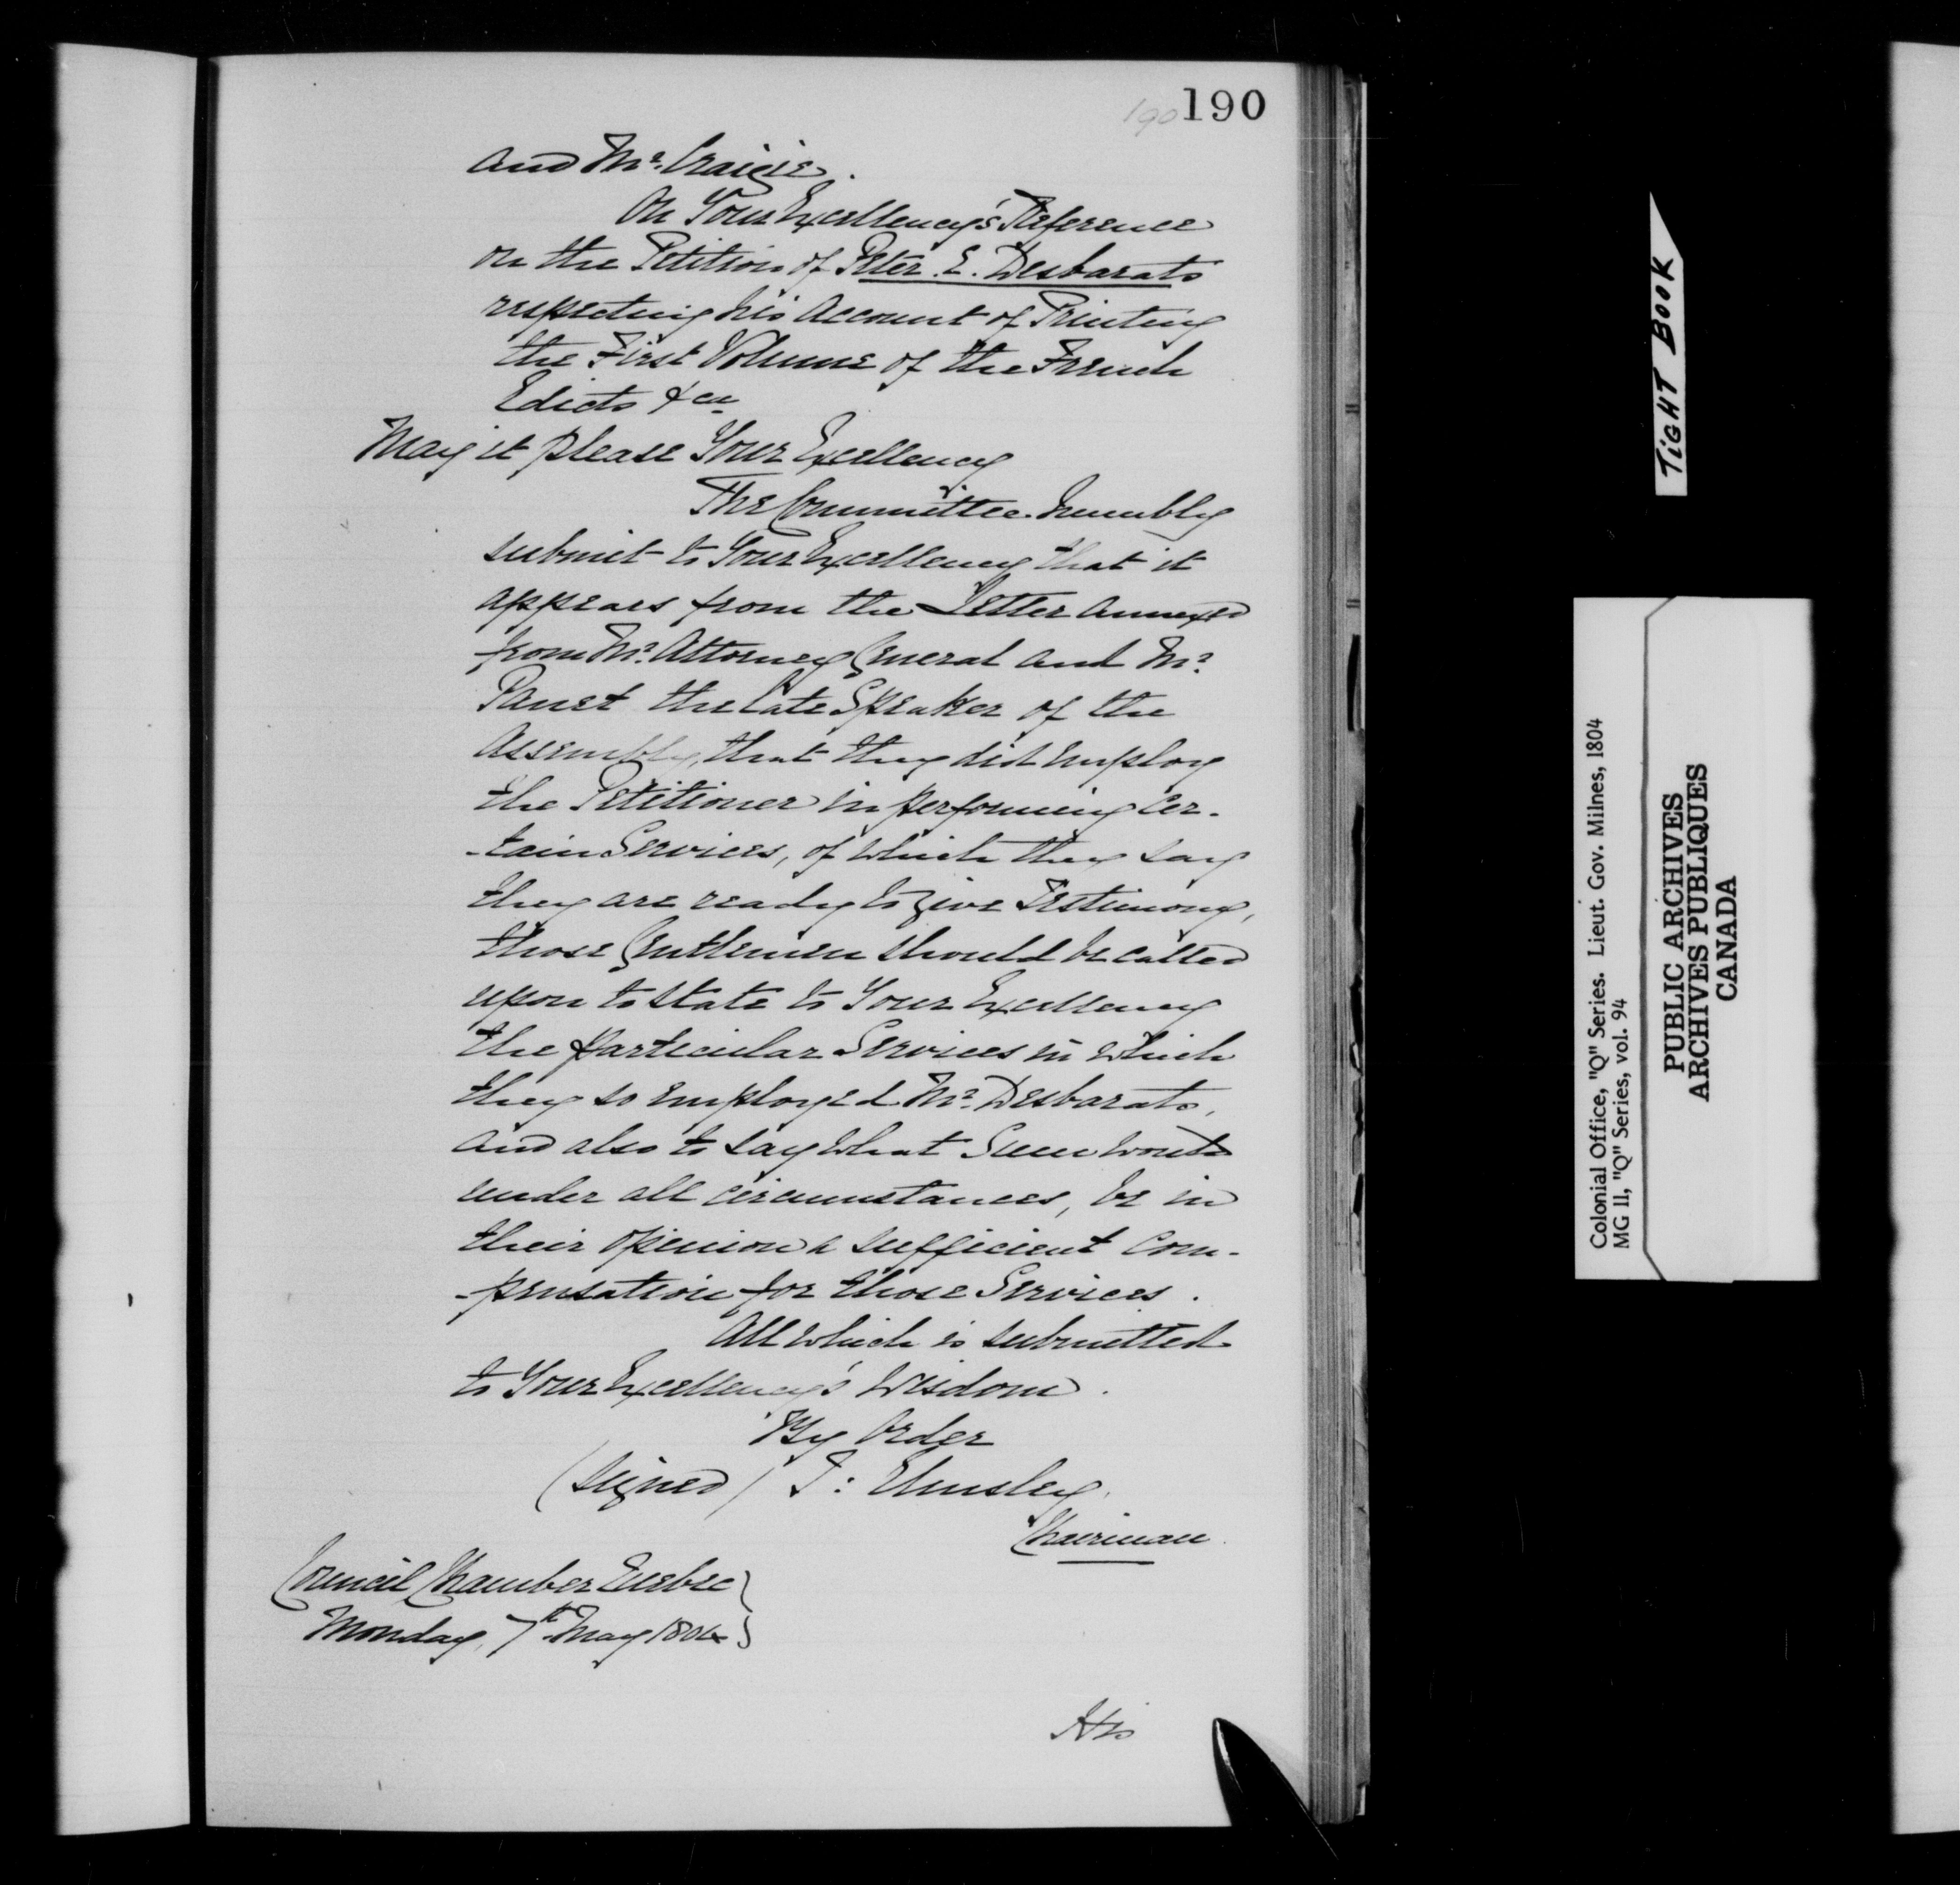 190 190
and Mr. Craigie.
On Your Excellency's Reference
on the Petition of Peter E. Desbarats
respecting his Account of Printing
the First Volume of the French
Edicts &ca
May it please Your Excellency
The Committee humbly
submit to Your Excellency that it
appears from the Letter annexed
from Mr. Attorney General and Mr.
Panet the late Speaker of the
Assembly, that they did employ
the Petitioner in performing Cer-
-tain Services, of which they say
they are ready to give Testimony,
those Gentlemen should be called
upon to state to Your Excellency
the particular Services in which
they so employed Mr. Desbarats,
and also to say what Sum would
under all circumstances, be in
their opinion a sufficient Com-
-pensation for those Services.
All which is submitted
to Your Excellency's Wisdom.
By Order
(signed) J: Elmsley,
Chairman.
Council Chamber Quebec }
Monday, 7th May 1804 }
His
TIGHT BOOK
Colonial Office, "Q" Series. Lieut. Gov. Milnes, 1804
MG 11, "Q" Series, vol. 94
PUBLIC ARCHIVES
ARCHIVES PUBLIQUES
CANADA